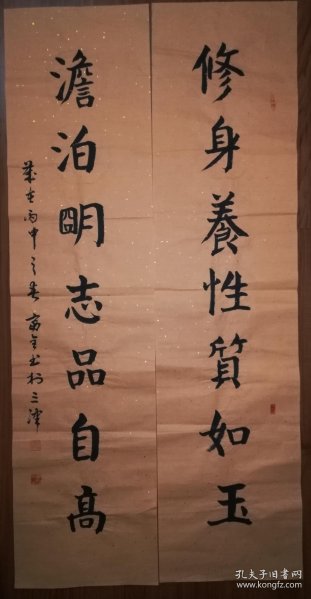 修身養性質如玉
澹泊明志品自高
歲在丙申之春 富全书於三津
孔夫子旧书网
www.kongfz.com